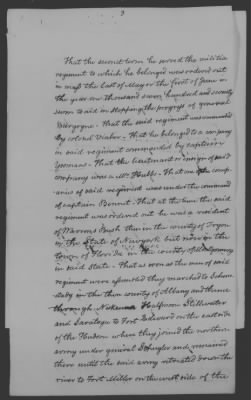 3
That the second term he served the militia
regiment to which he belonged was ordered out
in mass the last of May or the first of June in
the year one thousand seven hundred and seventy
seven to aid in stopping the progress of general
Burgoyne. That the said regiment was commanded
by colonel Visher. That he belonged to a company
in said regiment commanded by captain
Yeomans. That the lieutenant or ensign of said
company was a Mr. Hubbs. That one of the comp-
anies of said regiment was under the command
of captain Bennet. That at the time the said
regiment was ordered out he was a resident
of Warrens Bush then in the county of Tryon
in the State of Newyork but now in the
town of Florida in the county of Montgomery
in said State. That as soon as the men of said
regiment were assembled they marched to Schenec-
tady in the then county of Albany and thence
through Halfmoon Stillwater
and Saratoga to Fort Edward on the east side
of the Hudson when they joined the northern
army under general Schuyler and remained
there until the said army retreated down the
river to Fort Miller on the west side of the